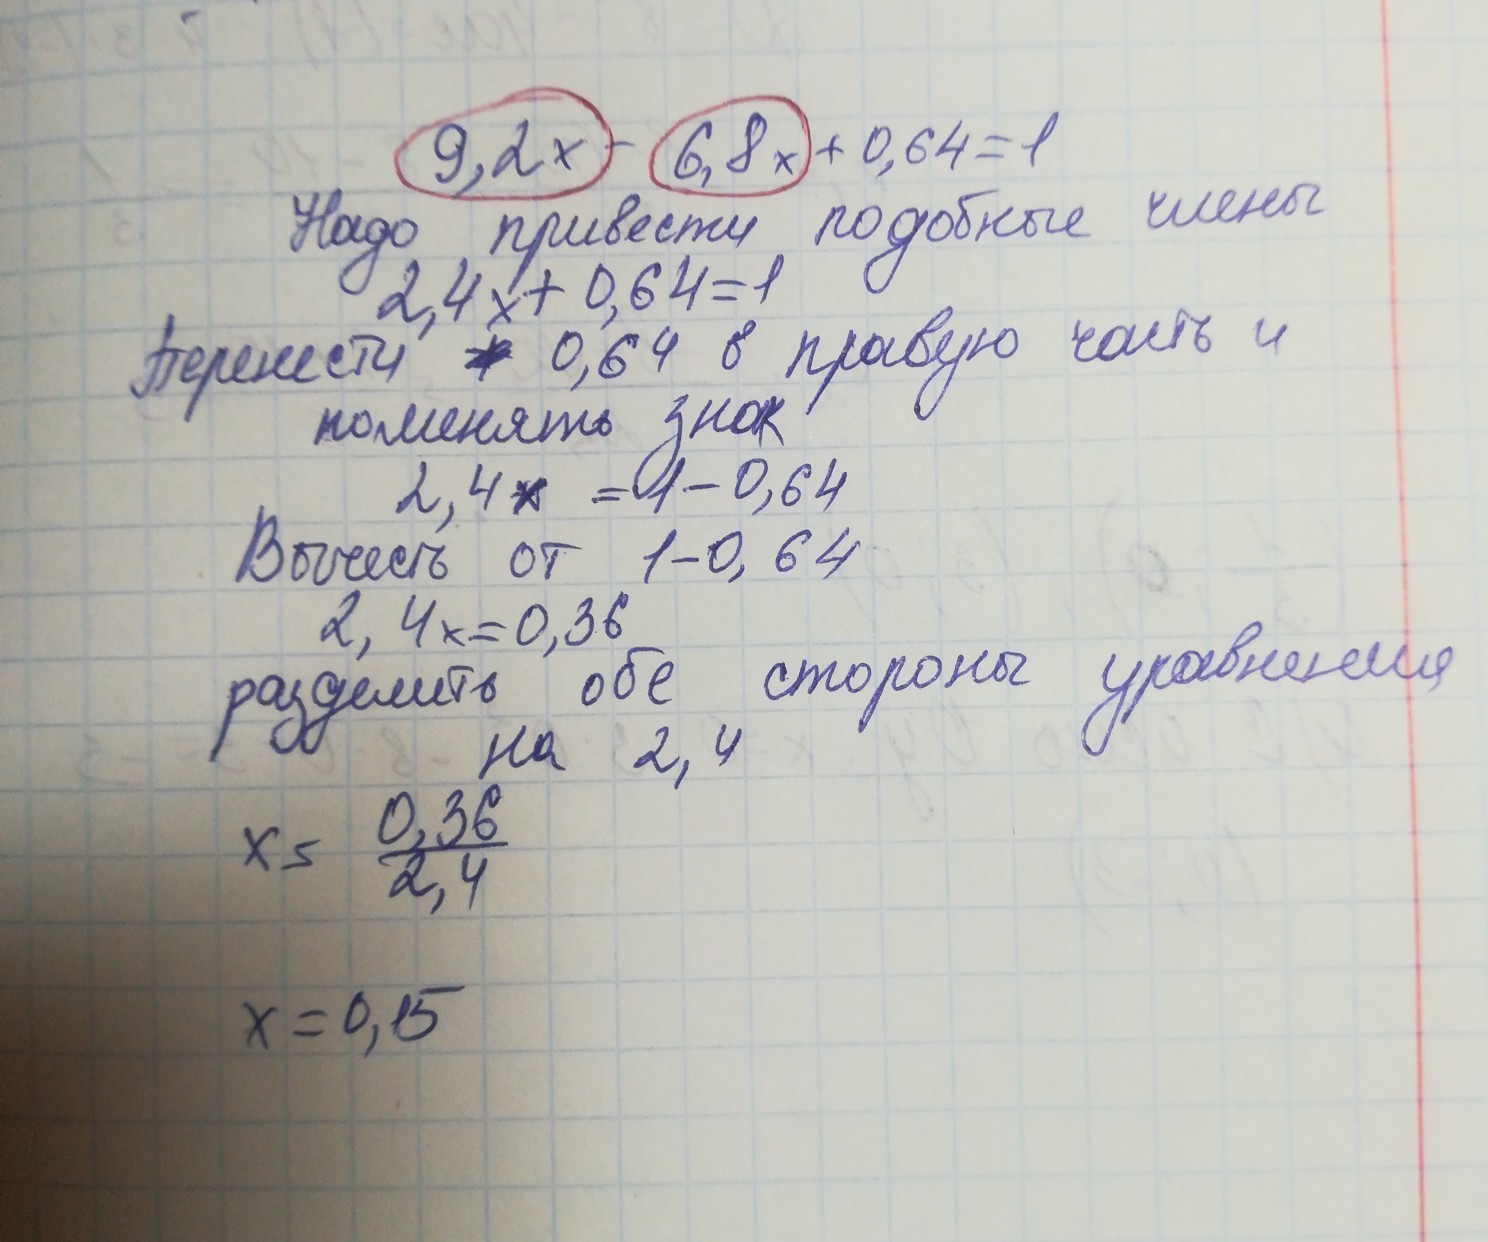 9,2x - 6,8x + 0,64 = 1
Надо привести подобные члены
2,4x + 0,64 = 1
Перенести 0,64 в правую часть и
поменять знак
2,4x = 1 - 0,64
Вычесть от 1 - 0,64
2,4x = 0,36
разделить обе стороны уравнения
на 2,4
x = 0,36
2,4
x = 0,15